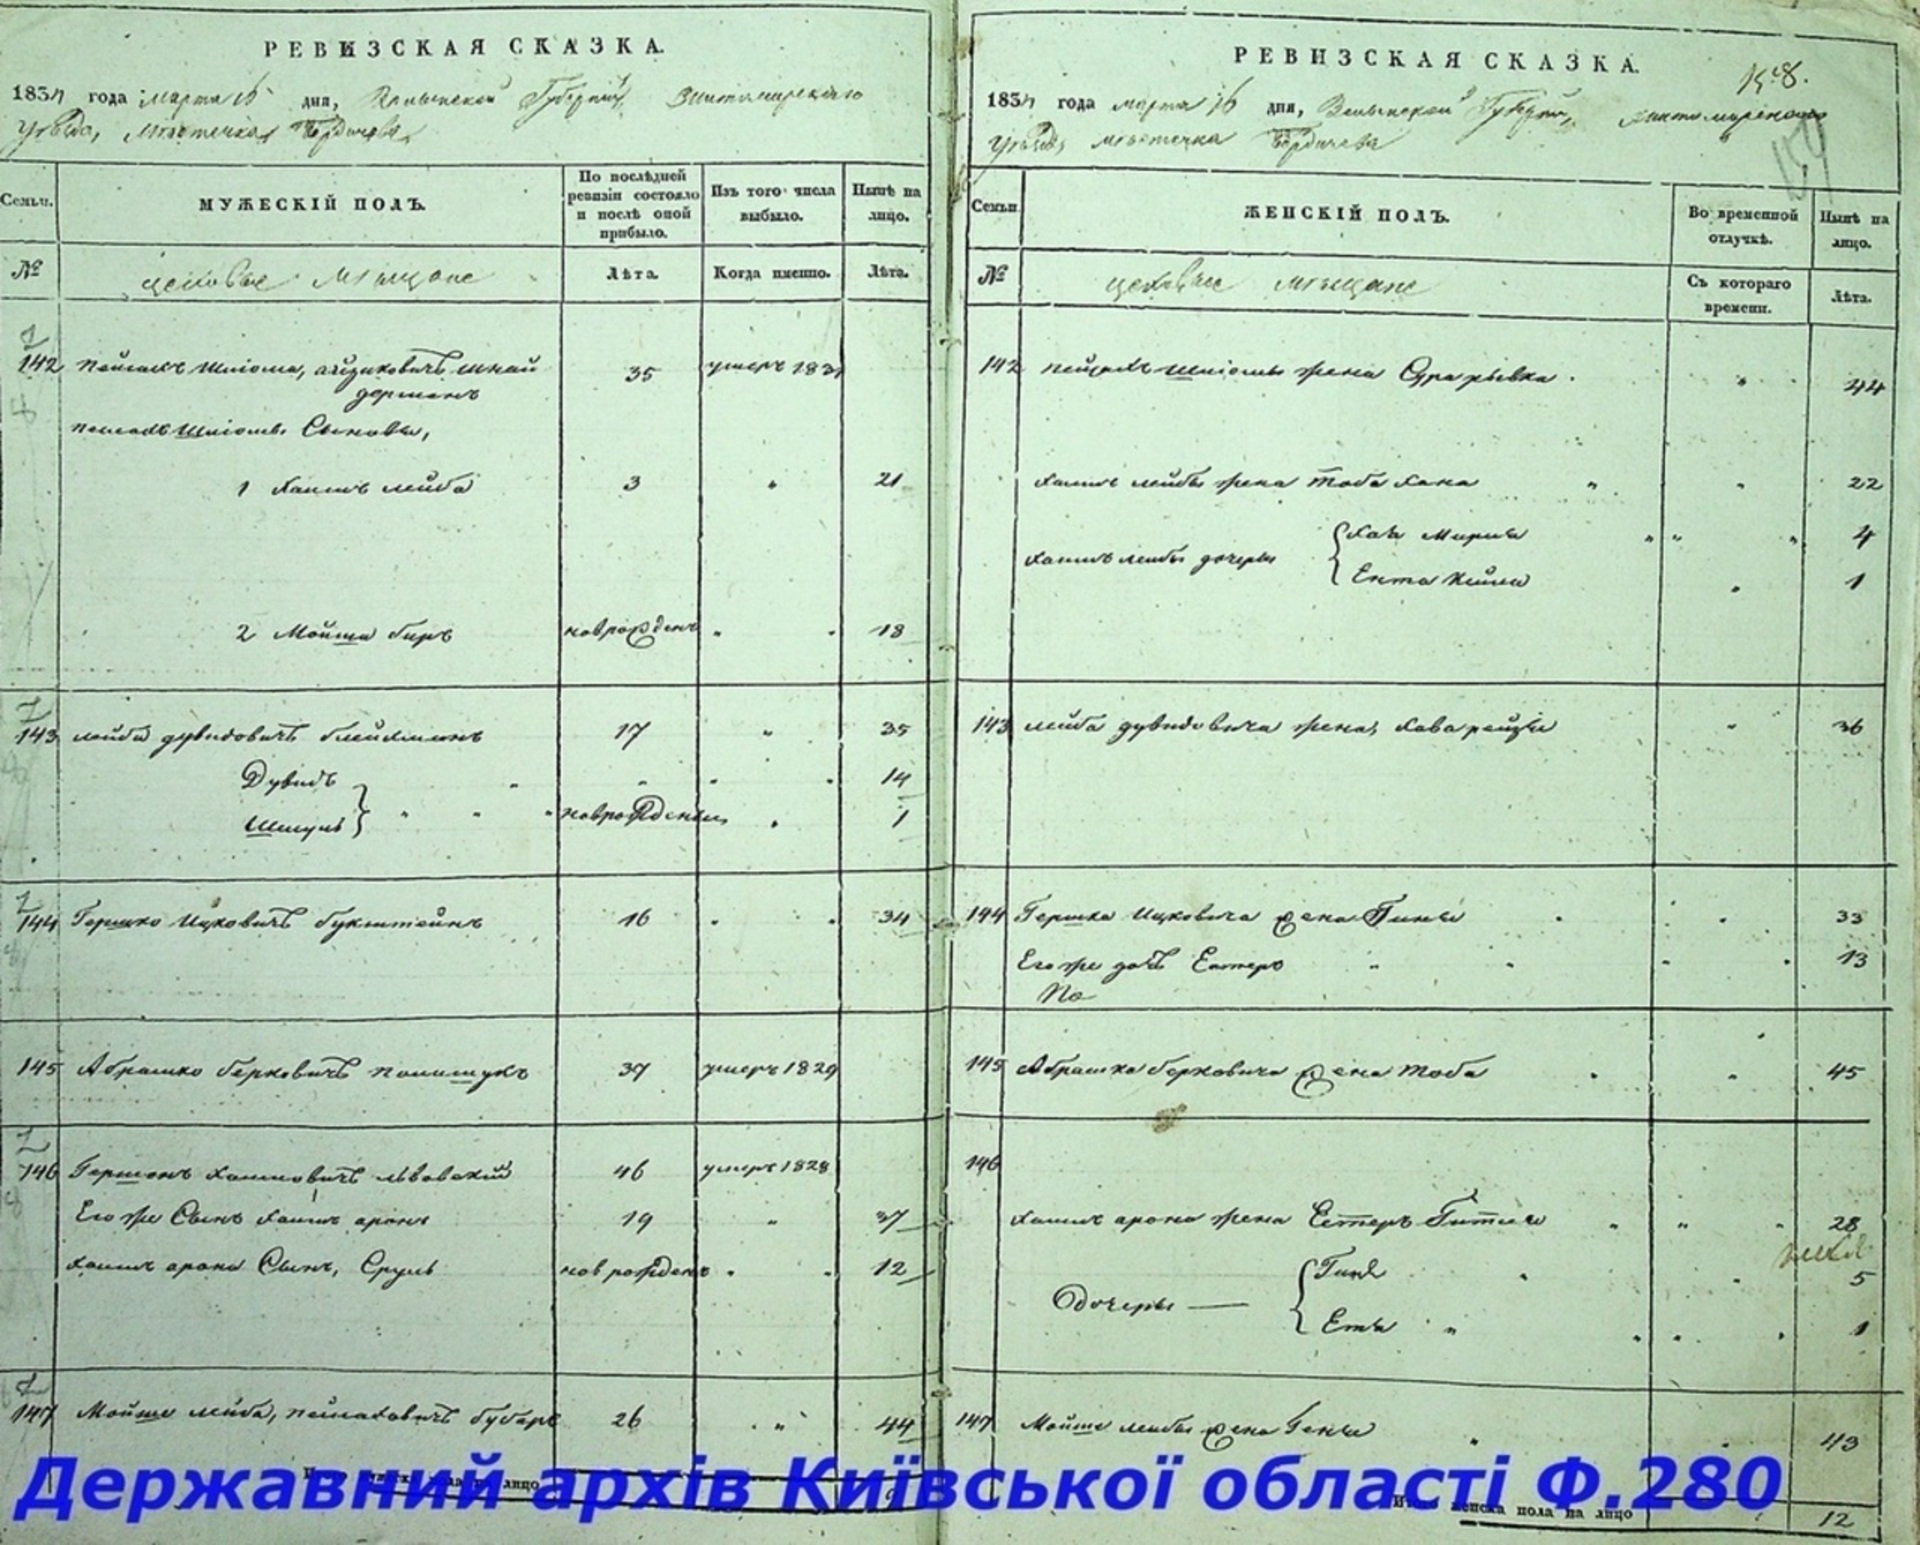 РЕВИЗСКАЯ СКАЗКА.
1834 года марта 16 дня, Волынской Губернии, Житомирского
уѣзда, мѣстечка Бердичева
Семьи.
МУЖЕСКІЙ ПОЛЪ.
По послѣдней ревизіи состояло и послѣ оной прибыло.
Изъ того числа выбыло.
Нынѣ на лицо.
№
цеховые мѣщане
Лѣта.
Когда именно.
Лѣта.
142 Пейсахъ Шліома, Айзиковичъ Шнай 35 умеръ 1831
дерманъ
Пейсахъ Шліомы Сыновья,
1 Хаимъ лейба 3 " 21
2 Мойше беръ новрожденъ " 18
143 лейба дувидовичъ блейхманъ 17 " 35
Дувидъ " 14
Шмуль новрожденны " 1
144 Гершко Ицковичъ букштейнъ 16 " 34
145 Абрашко берковичъ полищукъ 37 умеръ 1829
146 Гершонъ Хаимовичъ львовскій 46 умеръ 1828
Его же Сынъ Хаимъ аронъ 19 " 37
Хаимъ арона Сынъ, Сруль новрожденъ " 12
147 Мойше лейба, пейсаховичъ 26 " 44
лицо
РЕВИЗСКАЯ СКАЗКА.
158.
159
1834 года марта 16 дня, Волынской Губерніи, Житомирского
уѣзда, мѣстечка Бердичева
Семьи
ЖЕНСКІЙ ПОЛЪ.
Во временной отлучкѣ.
Нынѣ на лицо.
№
цеховые мѣщане
Съ котораго времени.
Лѣта.
142 пейсахъ Шліомы жена Сура рывка " 44
Хаимъ лейбы жена Тоба Хана " 22
Хаимъ лейбы дочеры Хая Мирля " 4
Ента Кейла " 1
143 лейба дувидовича жена, Хава рейзя " 36
144 Гершка Ицковича жена " 33
Его же дочь Естеръ " 13
145 Абрашка берковича жена Тоба " 45
146
Хаимъ арона жена Естеръ Гитля " 28
5
дочеры — Еты " 1
147 Мойше лейбы жена Геня " 43
Итого женска пола на лицо 12
Державний архів Київської області Ф.280